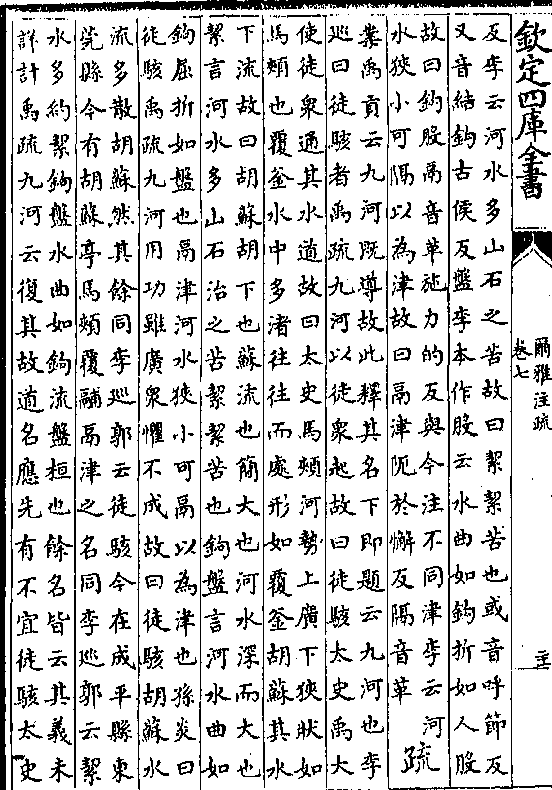 欽定四庫全書
爾雅注疏
卷七
反李云河水多山石之苦故曰絜絜苦也或音呼節反
又音結鉤古侯反盤李本作股云水曲如鉤折如人股
故曰鉤股鬲音革施力的反與今注不同津李云河
水狹小可隔以為津故曰鬲津阨於懈反隔音革
疏
案禹貢云九河既導故此釋其名下即題云九河也李
巡曰徒駭者禹疏九河以徒衆起故曰徒駭太史禹大
使徒衆通其水道故曰太史馬頰河勢上廣下狹狀如
馬頰也覆釜水中多渚往往而處形如覆釜胡蘇其水
下流故曰胡蘇胡下也蘇流也簡大也河水深而大也
絜言河水多山石治之苦絜絜苦也鉤盤言河水曲如
鉤屈折如盤也鬲津河水狹小可鬲以為津也孫炎曰
徒駭禹疏九河用功雖廣衆懼不成故曰徒駭胡蘇水
流多散胡蘇然其餘同李巡郭云徒駭今在成平縣東
莞縣今有胡蘇亭馬頰覆鬴鬲津之名同李巡郭云絜
水多約絜鉤盤水曲如鉤流盤桓也餘名皆云其義未
詳計禹疏九河云復其故道名應先有不宜徒駭太史